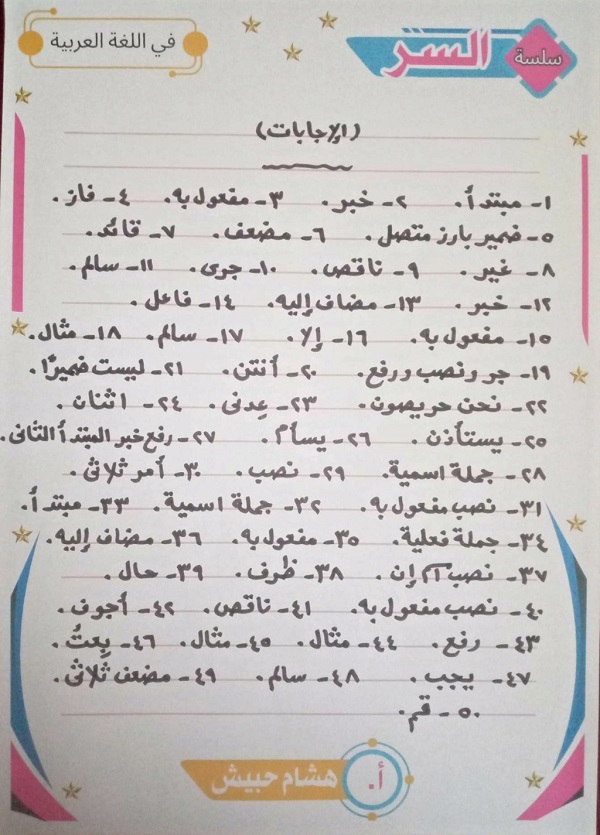 سلسة السر
في اللغة العربية
(الإجابات)
١- مبتدأ. ٢- خبر. ٣- مفعول به. ٤- فاز.
٥- ضمير بارز متصل. ٦- مضعف. ٧- قائد.
٨- غير. ٩- ناقص. ١٠- جرى. ١١- سالم.
١٢- خبر. ١٣- مضاف إليه. ١٤- فاعل.
١٥- مفعول به. ١٦- إلا. ١٧- سالم. ١٨- مثال.
١٩- جر ونصب ورفع. ٢٠- أنتن. ٢١- ليست ضميرًا.
٢٢- نحن حريصون. ٢٣- عِدنى. ٢٤- اثنان.
٢٥- يستأذن. ٢٦- يسأم. ٢٧- رفع خبر المبتدأ الثانى.
٢٨- جملة اسمية. ٢٩- نصب. ٣٠- أمر ثلاثى.
٣١- نصب مفعول به. ٣٢- جملة اسمية. ٣٣- مبتدأ.
٣٤- جملة فعلية. ٣٥- مفعول به. ٣٦- مضاف إليه.
٣٧- نصب اسم إن. ٣٨- ظرف. ٣٩- حال.
٤٠- نصب مفعول به. ٤١- ناقص. ٤٢- أجوف.
٤٣- رفع. ٤٤- مثال. ٤٥- مثال. ٤٦- بِعتُ.
٤٧- يجب. ٤٨- سالم. ٤٩- مضعف ثلاثى.
٥٠- قم.
أ. هشام حبيش